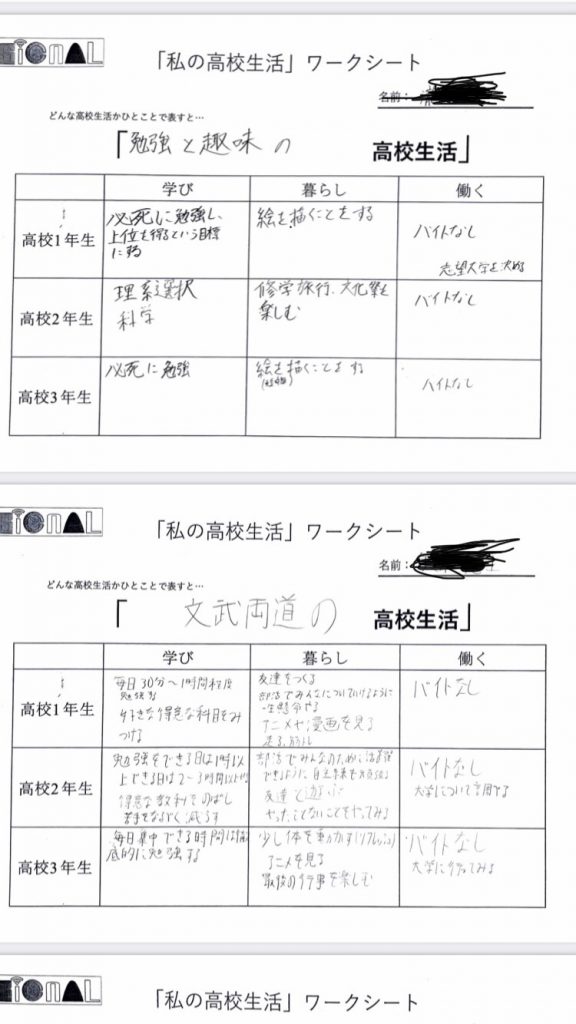 「私の高校生活」ワークシート
名前：
どんな高校生活かひとことで表すと…
「勉強と趣味の 高校生活」
学び 暮らし 働く
高校1年生
必死に勉強し、
上位を得るという目標
にする
絵を描くことをする
バイトなし
志望大学を決める
高校2年生
理系選択
科学
修学旅行、文化祭を
楽しむ
バイトなし
高校3年生
必死に勉強
絵を描くことをする
バイトなし
「私の高校生活」ワークシート
名前：
どんな高校生活かひとことで表すと…
「文武両道の 高校生活」
学び 暮らし 働く
高校1年生
毎日30分〜1時間程度
勉強する
好きな得意な科目をみ
つける
友達をつくる
部活でみんなについていけるように
一生懸命やる
アニメや漫画を見る
走る、筋トレ
バイトなし
高校2年生
勉強をできる日は1時以
上できる日は2〜3時間以上
得意な教科をのばし
苦手をなるべく減らす
部活でみんなのために活躍
できるように自主練も頑張る
友達と遊ぶ
やったことないことをやってみる
バイトなし
大学について
高校3年生
毎日集中できる時間は徹
底的に勉強する
少し体を動かす(リフレッシュ)
アニメを見る
最後の行事を楽しむ
バイトなし
大学に行ってみる
「私の高校生活」ワークシート